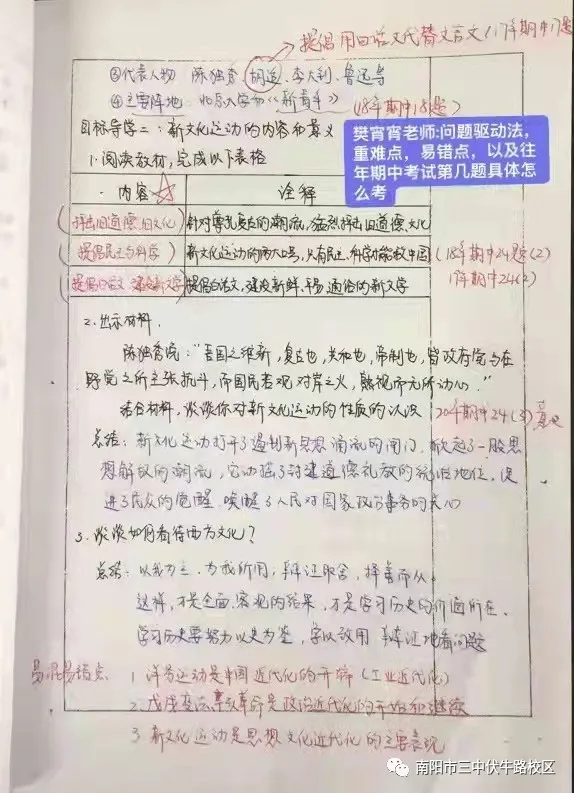 提倡用白话文代替文言文(17年期中17题
③代表人物 陈独秀、胡适、李大钊、鲁迅等
④主要阵地:北京大学和《新青年》(18年期中18题)
目标导学二:新文化运动的内容和意义
樊宵宵老师:问题驱动法,
重难点,易错点,以及往
年期中考试第几题具体怎
么考
1.阅读教材,完成以下表格
内容☆ 诠释
(抨击旧道德、旧文化) 针对尊孔复古的潮流,猛烈抨击旧道德、文化
(提倡民主与科学) 新文化运动的两大口号,只有民主、科学才能救中国 (18年期中24题(2)
(提倡白话文 建设新文学) 提倡白话文,建设新鲜、平易、通俗的新文学 17年期中24(2)
2.出示材料.
陈独秀说:“吾国之维新,复古也,共和也,帝制也,皆政府党与在
野党之所主张抗斗,而国民若观对岸之火,熟视而无所动心。”
结合材料,谈谈你对新文化运动的性质的认识 20年期中24(3)意义
总结:新文化运动打开了遏制新思想涌流的闸门,掀起了一股思
想解放的潮流,它动摇了封建道德礼教的统治地位,促
进了民众的觉醒,唤醒了人民对国家政治事务的关心
3.谈谈如何看待西方文化?
总结:以我为主、为我所用,辩证取舍,择善而从。
这样,才是全面、客观的结果,才是学习历史的价值所在、
学习历史要努力以史为鉴,学以致用 辩证地看问题
易混易错点 1.洋务运动是中国近代化的开端(工业近代化)
2.戊戌变法、辛亥革命是政治近代化的开始和继续
3.新文化运动是思想文化近代化的主要表现
南阳市三中伏牛路校区